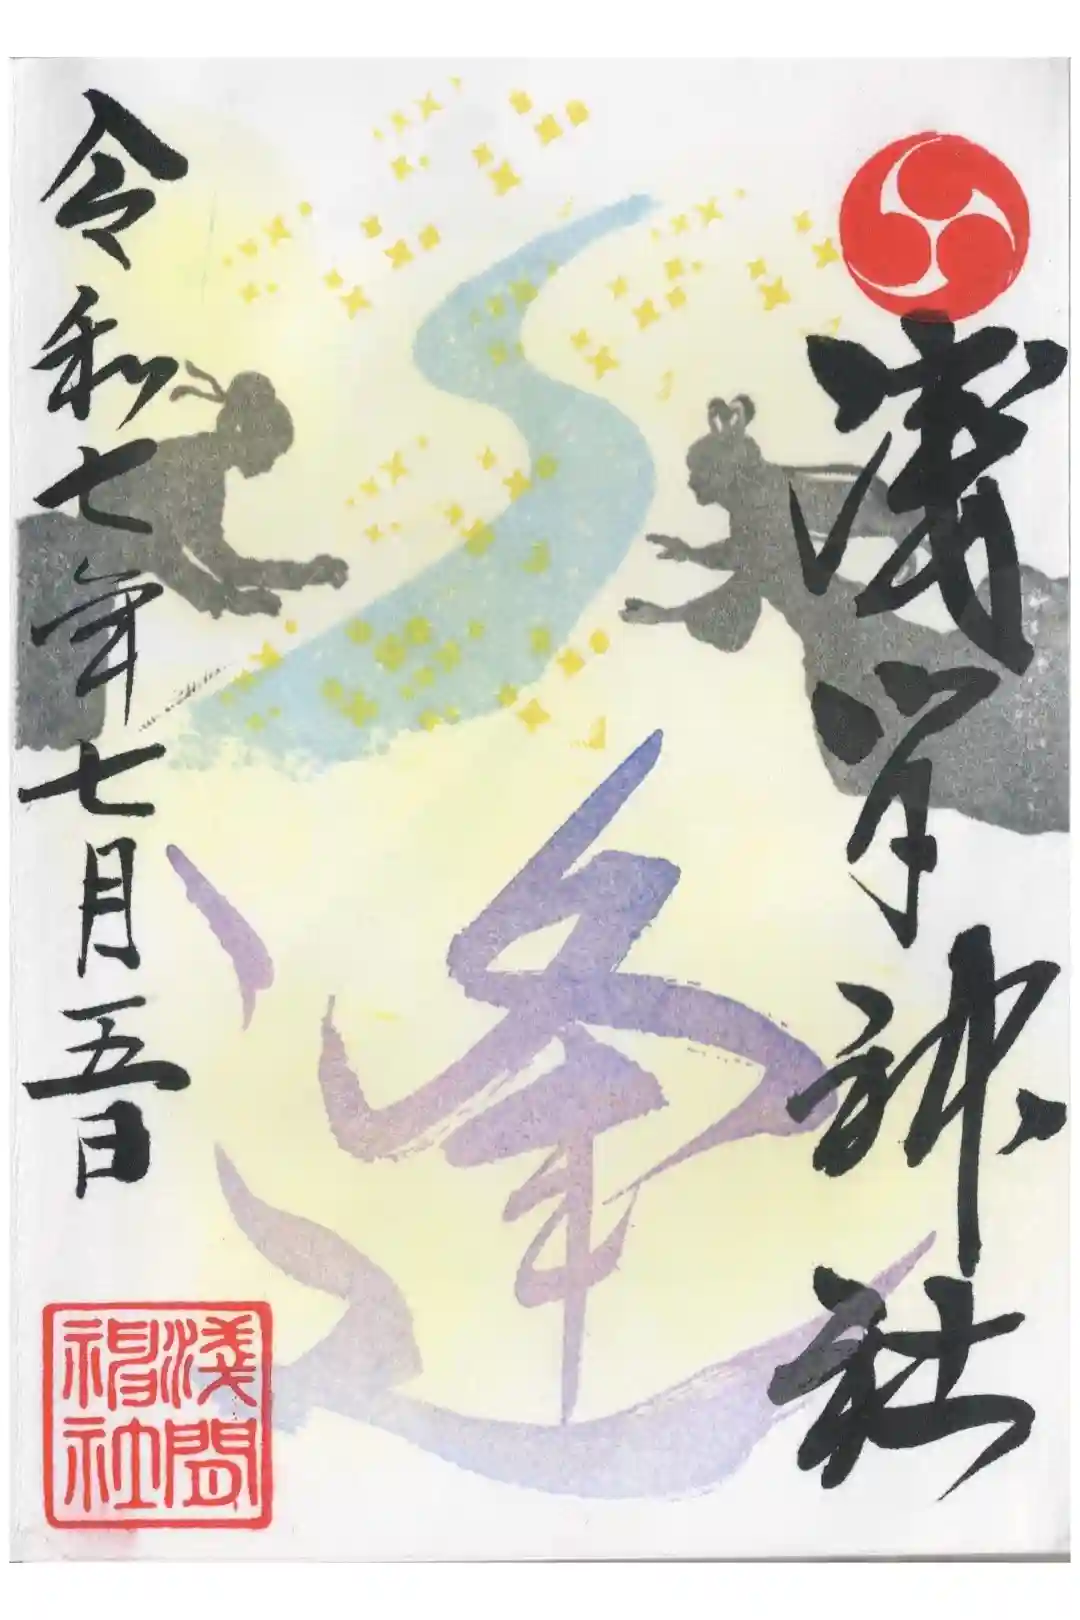 浅间神社
逢
令和七年七月五日
淺間
神社